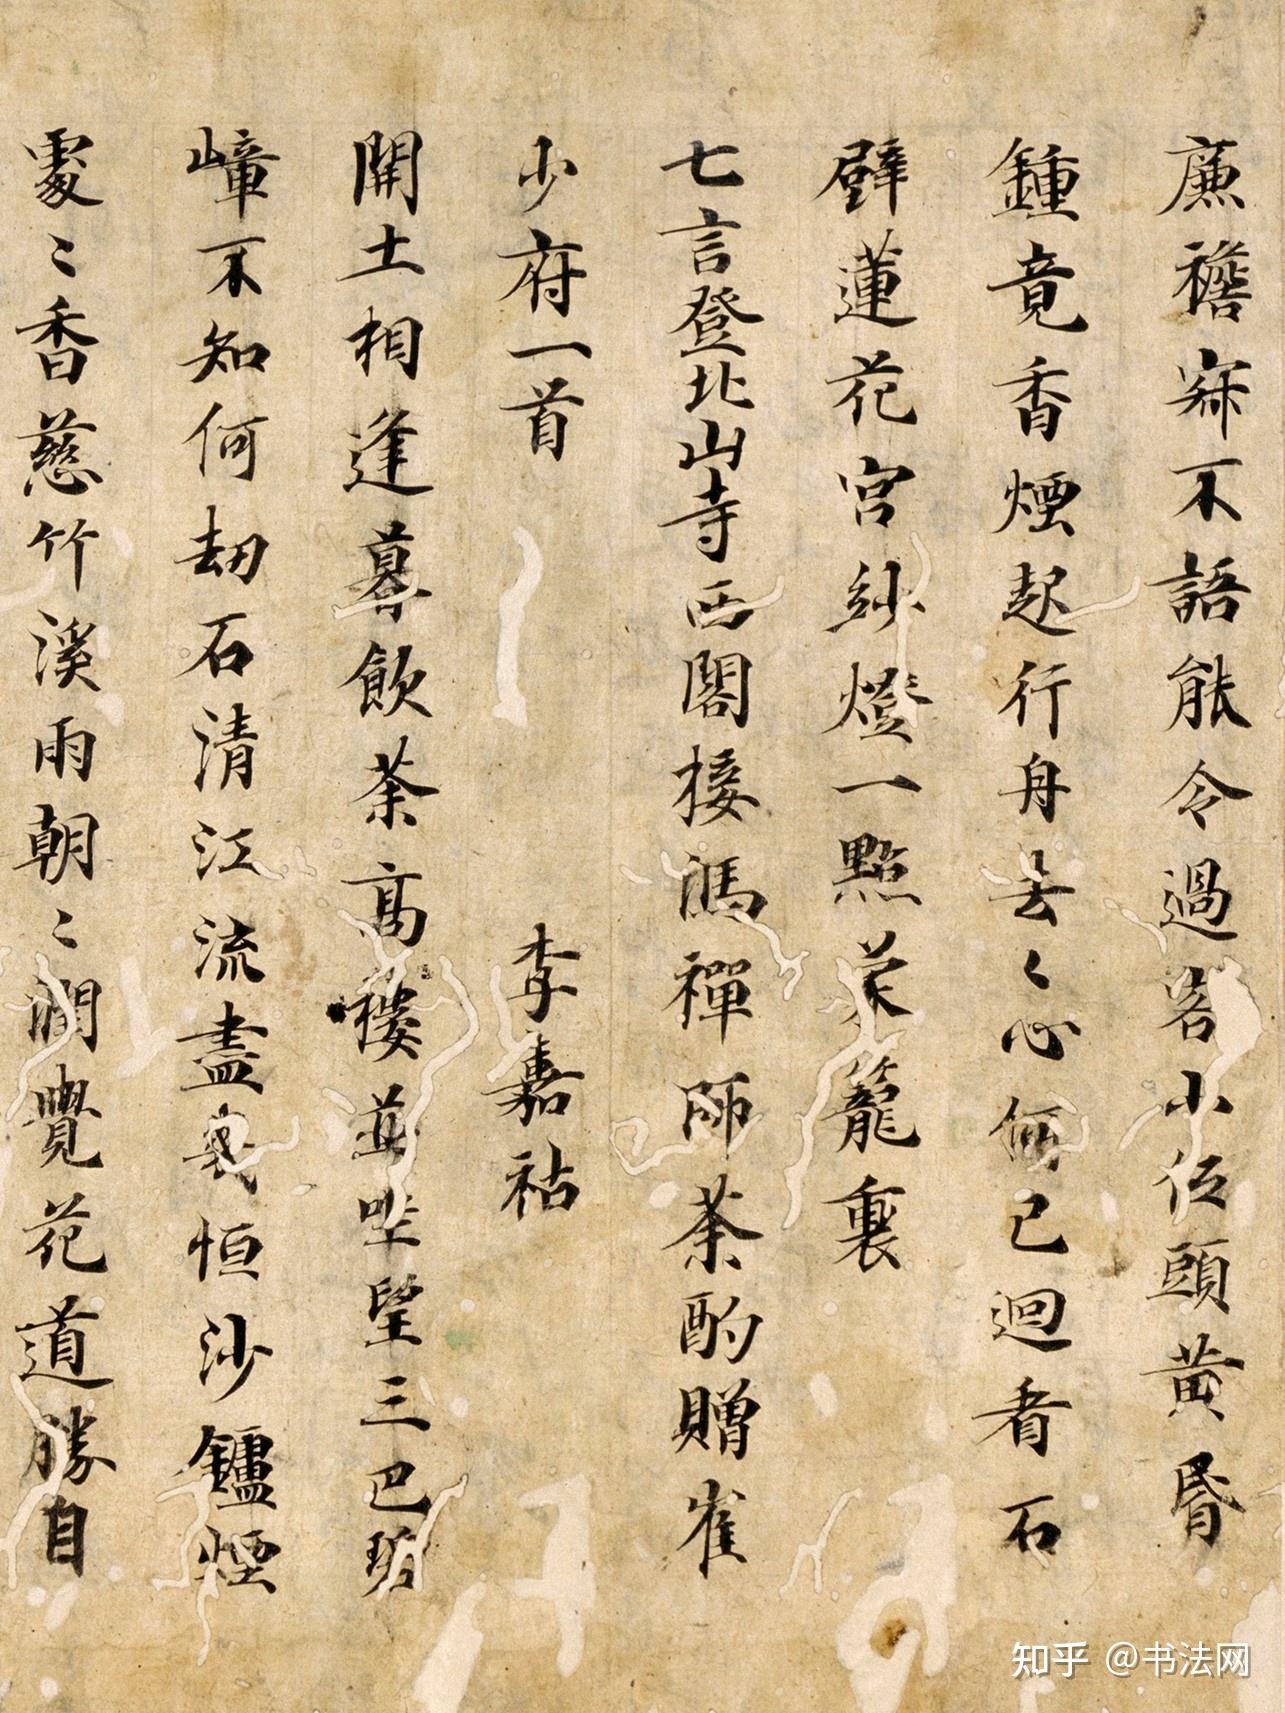 廉襜寂不語能令過客小低頭黃昏
鍾竟香煙起行舟去〻心何已迴看石
壁蓮花宮紗燈一點菉籠裏
七言登北山寺西閣接馮禪師茶酌贈崔
少府一首 李嘉祐
開士相逢暮飲茶高樓並坐望三巴
嶂不知何劫石清江流盡恒沙鑪煙
處〻香慈竹溪雨朝〻潤覺花道勝自
知乎 @书法网